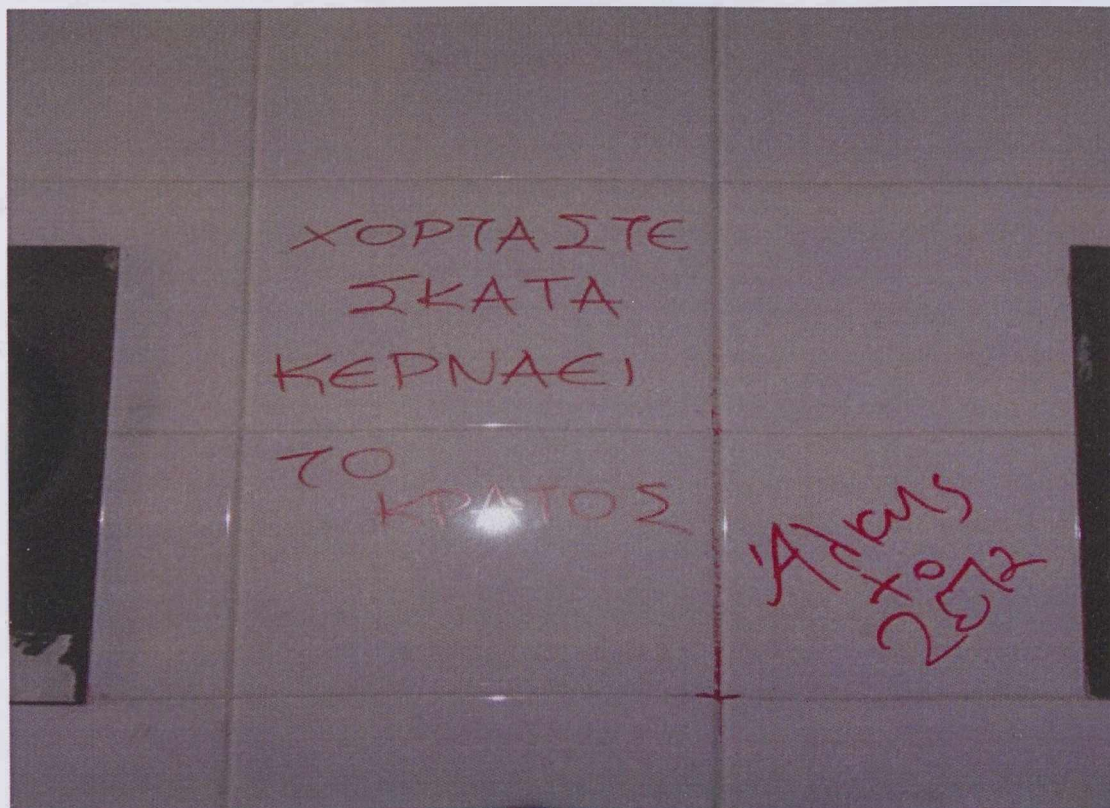 ΧΟΡΤΑΣΤΕ
ΣΚΑΤΑ
ΚΕΡΝΑΕΙ
ΤΟ
ΚΡΑΤΟΣ
Άλκης